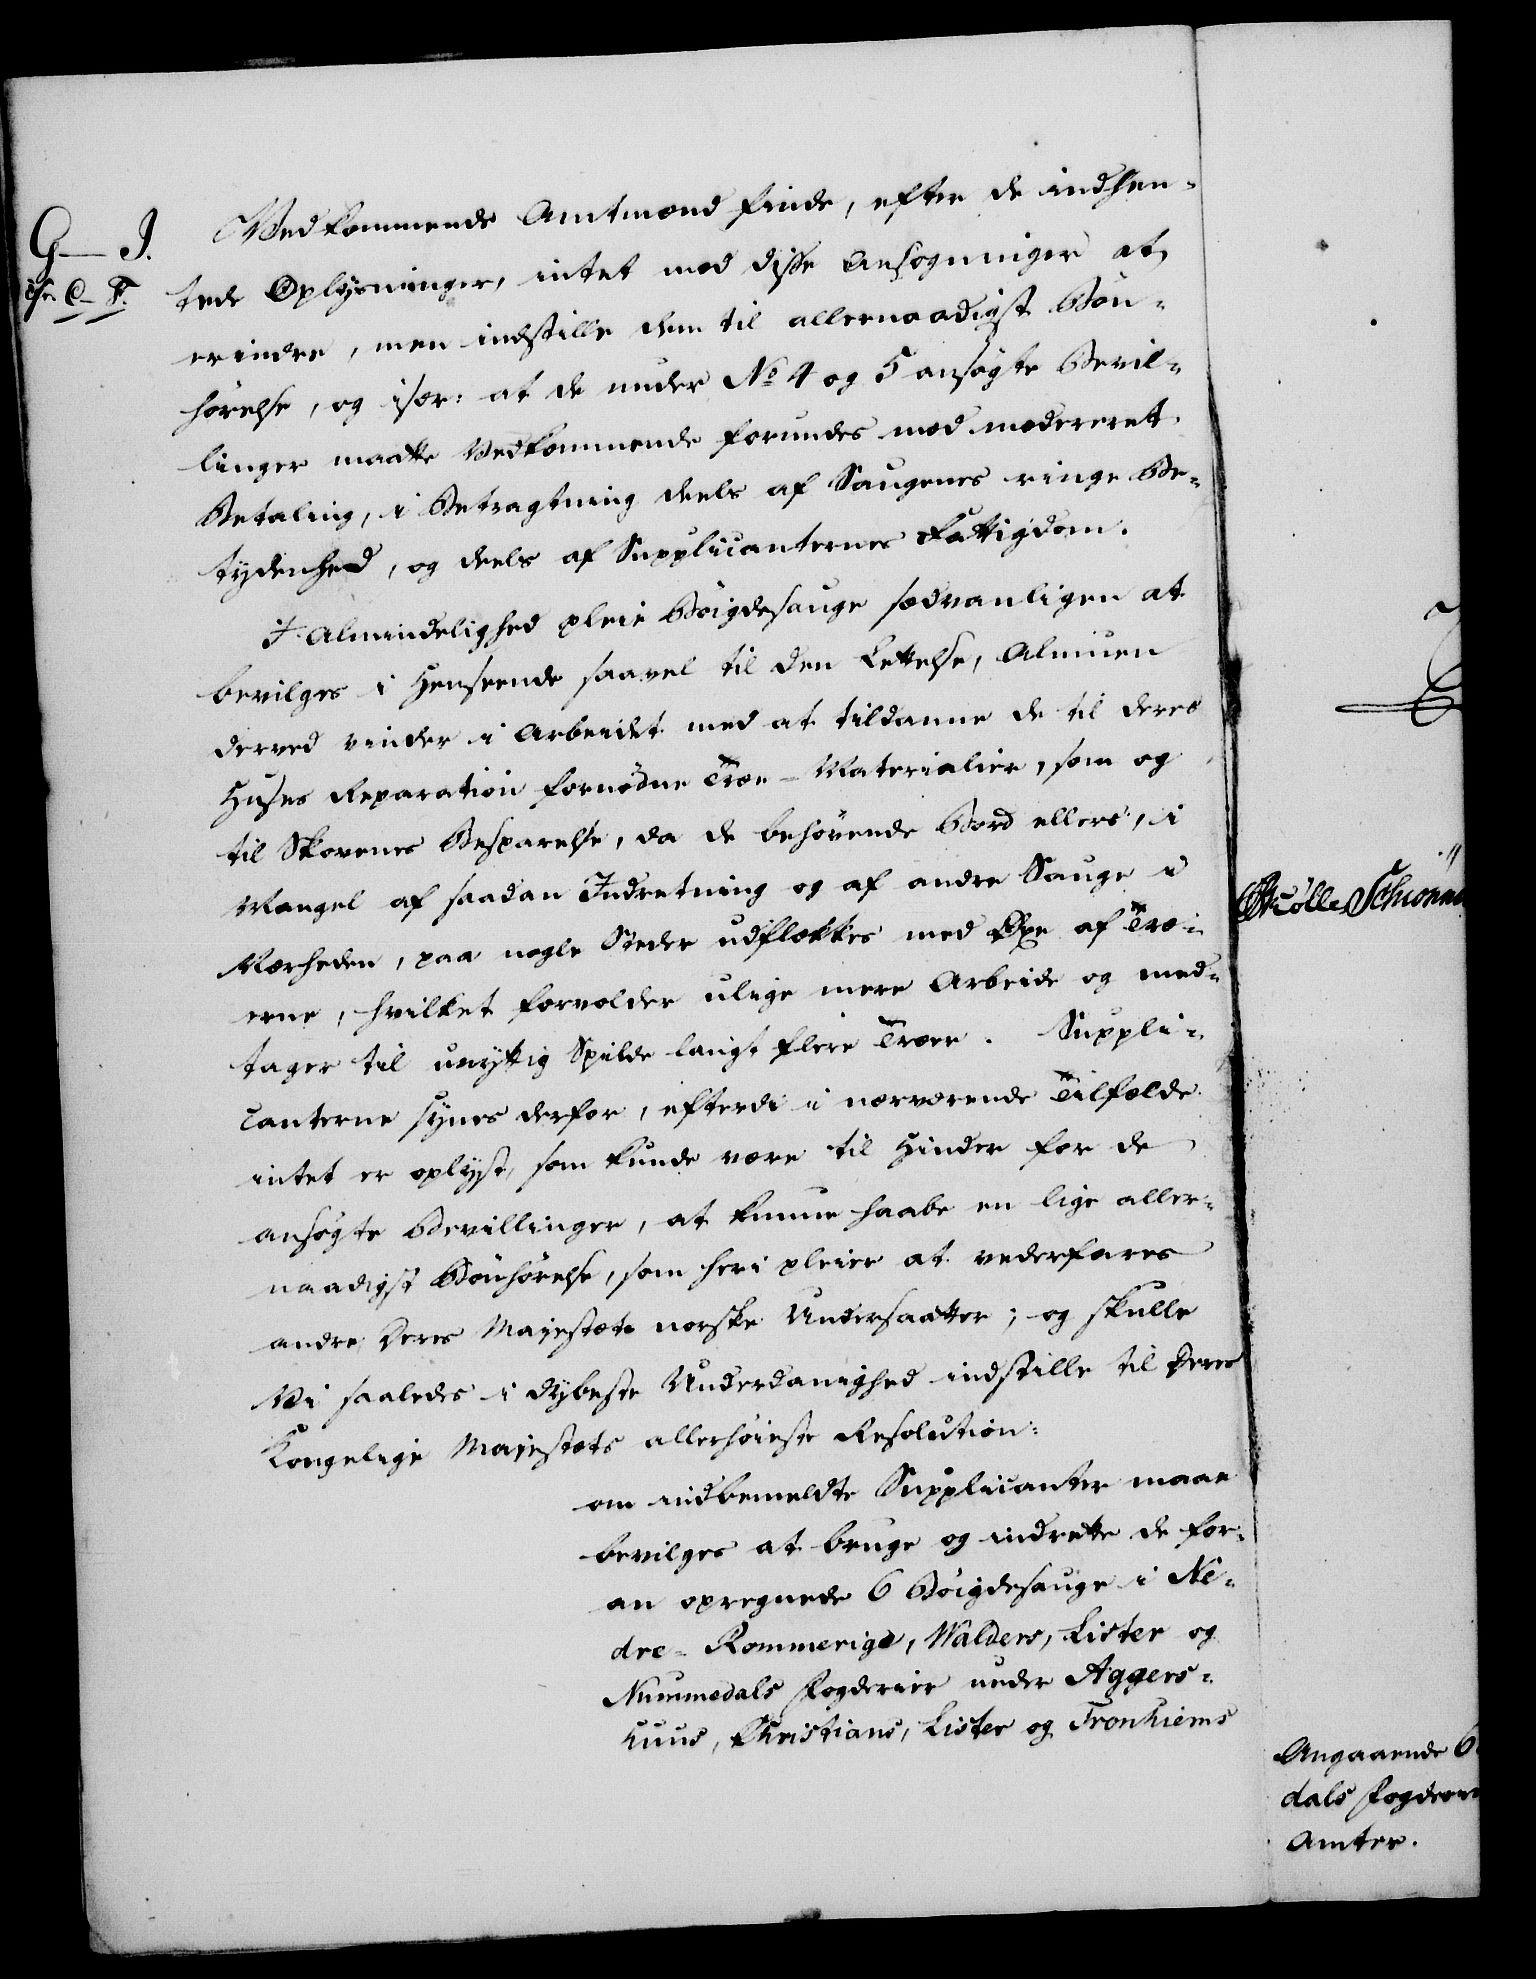 G – I.
cfr. C – F.
Vedkommende Amtmænd finde, efter de indhen-
tede Oplysninger, intet mod disse Ansøgninger at
erindre, men indstille dem til allernaadigst Bøn-
hørelse, og især: at de under No 4 og 5 ansøgte Bevil-
linger maatte Vedkommende forundes mod modereret
Betaling, i Betragtning deels af Saugenes ringe Be-
tydenhed, og deels af Supplicanternes Fattigdom.
I Almindelighed pleie Bøigdesauge sædvanligen at
bevilges i Henseende saavel til den Lettelse, Almuen
derved vinder i Arbeidet med at tildanne de til deres
Huses Reparation fornødne Træe-Materialier, som og
til Skovenes Besparelse, da de behøvende Bord ellers, i
Mangel af saadan Indretning og af andre Sauge i
Nærheden, paa nogle Steder udflækkes med Øxe af Træ-
erne, hvilket forvolder ulige mere Arbeide og med-
tager til unyttig Spilde langt fleere Træer. Suppli-
canterne synes derfor, efterdi i nærværende Tilfælde
intet er oplyst, som kunde være til Hinder for de
ansøgte Bevillinger, at kunne haabe en lige aller-
naadigst Bønhørelse, som heri pleier at vederfares
andre Deres Majestæts norske Undersaatter; og skulle
Vi saaledes i dybeste Underdanighed indstille til Deres
Kongelige Majestæts allerhøieste Resolution:
om indbemeldte Supplicanter maae
bevilges at bruge og indrette de for-
an opregnede 6 Bøigdesauge i Ne-
dre-Rommerige, Walders, Lister og
Nummedals Fogderier under Aggers-
huus, Christians, Lister og Tronhiems
Angaaende 6
dals Fogderie
Amter.